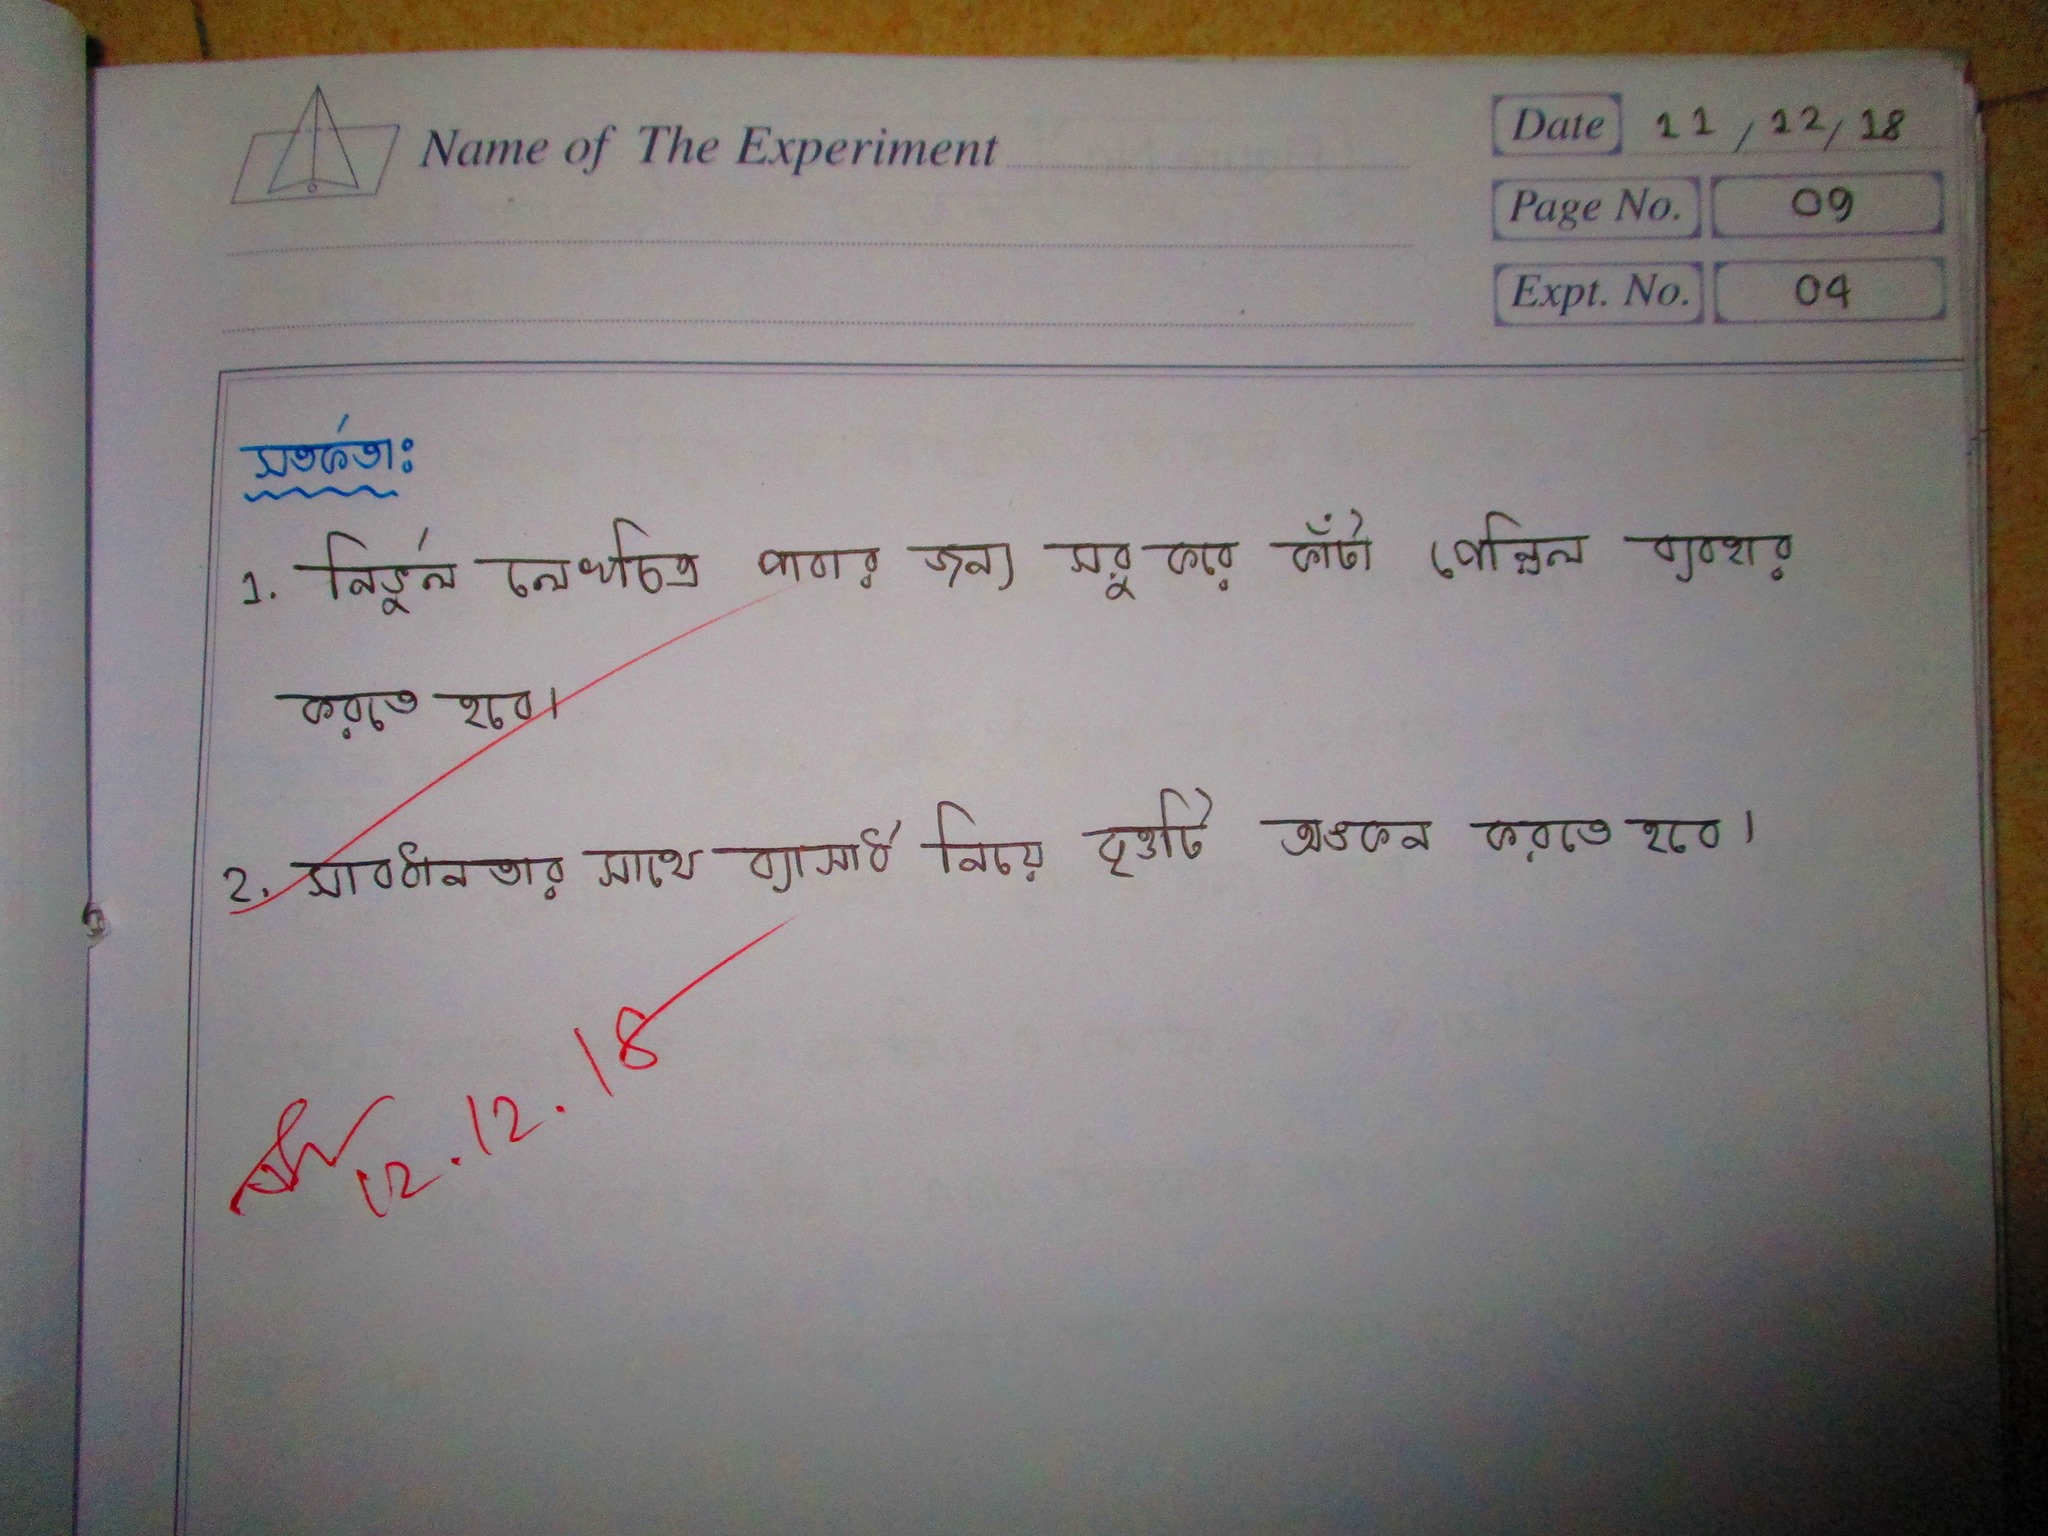 Name of The Experiment
Date 11/12/18
Page No. 09
Expt. No. 04
সতর্কতাঃ
1. নির্ভুল লেখচিত্র পাবার জন্য সরু করে কাঁটা পেন্সিল ব্যবহার
করতে হবে।
2. সাবধানতার সাথে ব্যাসার্ধ নিয়ে বৃত্তটি অঙকন করতে হবে।
12.12.18